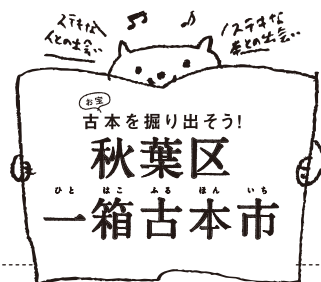 ステキな
人との出会い
ステキな
本との出会い
お宝
古本を掘り出そう!
秋葉区
ひと はこ ふる ほん いち
一箱古本市